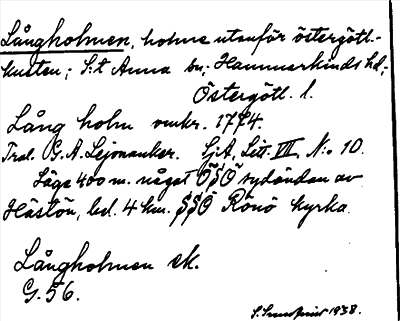 Långholmen, holme utanför östergött-
kusten; S:t Anna sn; Hammarkinds hd;
Östergötl. l.
Lång holm omkr. 1774.
Trol. G. A. Lejonanker. SjA, Litt. VII N:o 10.
Läge 400 m. något ÖSÖ sydändan av
Hästön, bel. 4 km. SSÖ Rönö kyrka
Långholmen ek.
G. 56.
1938.